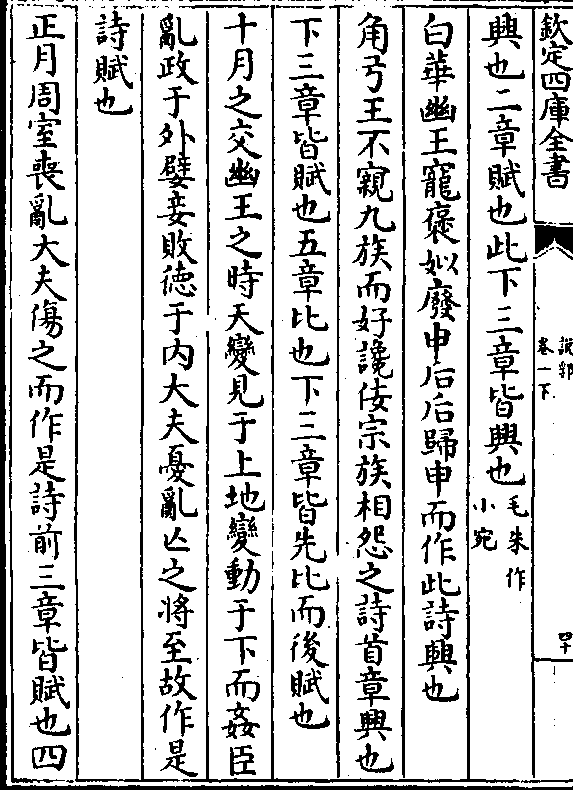 欽定四庫全書
說郛
卷一下
四十
興也二章賦也此下三章皆興也毛朱作
小宛
白華幽王寵褒姒廢申后后歸申而作此詩興也
角弓王不親九族而好讒佞宗族相怨之詩首章興也
下三章皆賦也五章比也下三章皆先比而後賦也
十月之交幽王之時天變見于上地變動于下而姦臣
亂政于外嬖妾敗徳于內大夫憂亂亾之將至故作是
詩賦也
正月周室喪亂大夫傷之而作是詩前三章皆賦也四